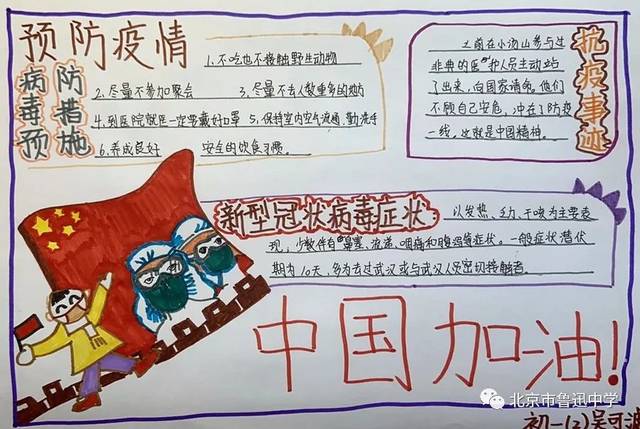 预防疫情
病毒预
防措施
1、不吃也不接触野生动物
2、尽量不参加聚会 3、尽量不去人数重多的地方
4、到医院就医一定要戴好口罩 5、保持室内空气流通、勤洗手
6、养成良好 安全的饮食习惯。
之前在小汤山参与过
非典的医护人员主动站
了出来,向国家请命。他们
不顾自己安危,冲在了防疫
一线。这就是中国精神。
抗疫事迹
新型冠状病毒症状
以发热、乏力、干咳为主要表
现,少数伴有鼻塞、流涕、咽痛和腹泻等症状。一般症状潜伏
期为10天,多为去过武汉或与武汉人员密切接触者。
中国加油!
北京市鲁迅中学
初一(2)吴可